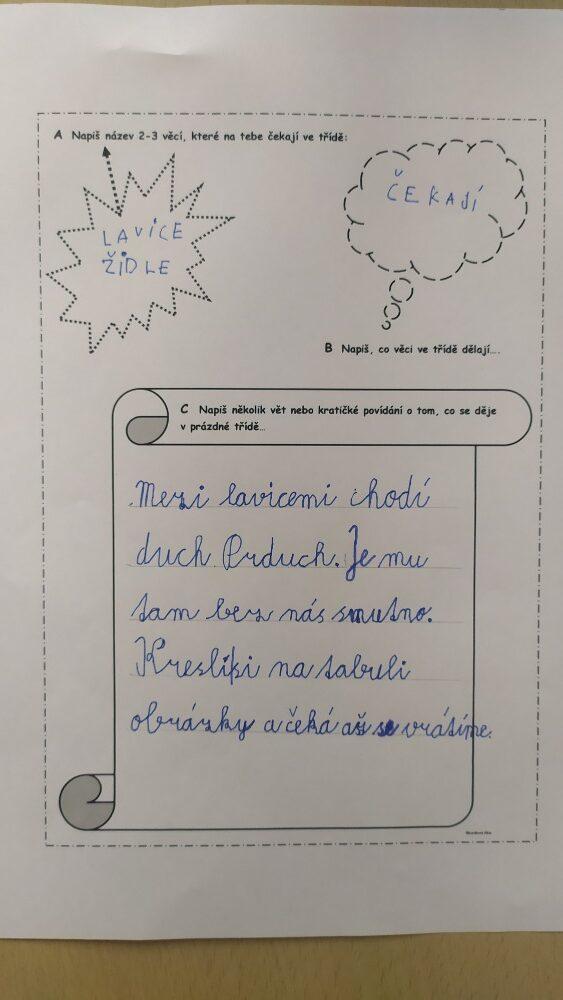 A Napiš název 2-3 věcí, které na tebe čekají ve třídě:
LAVICE
ŽIDLE
ČEKAJÍ
B Napiš, co věci ve třídě dělají....
C Napiš několik vět nebo kratičké povídání o tom, co se děje
v prázdné třídě...
Mezi lavicemi chodí
duch Prduch. Je mu
tam bez nás smutno.
Kreslí si na tabuli
obrázky a čeká až se vrátíme.